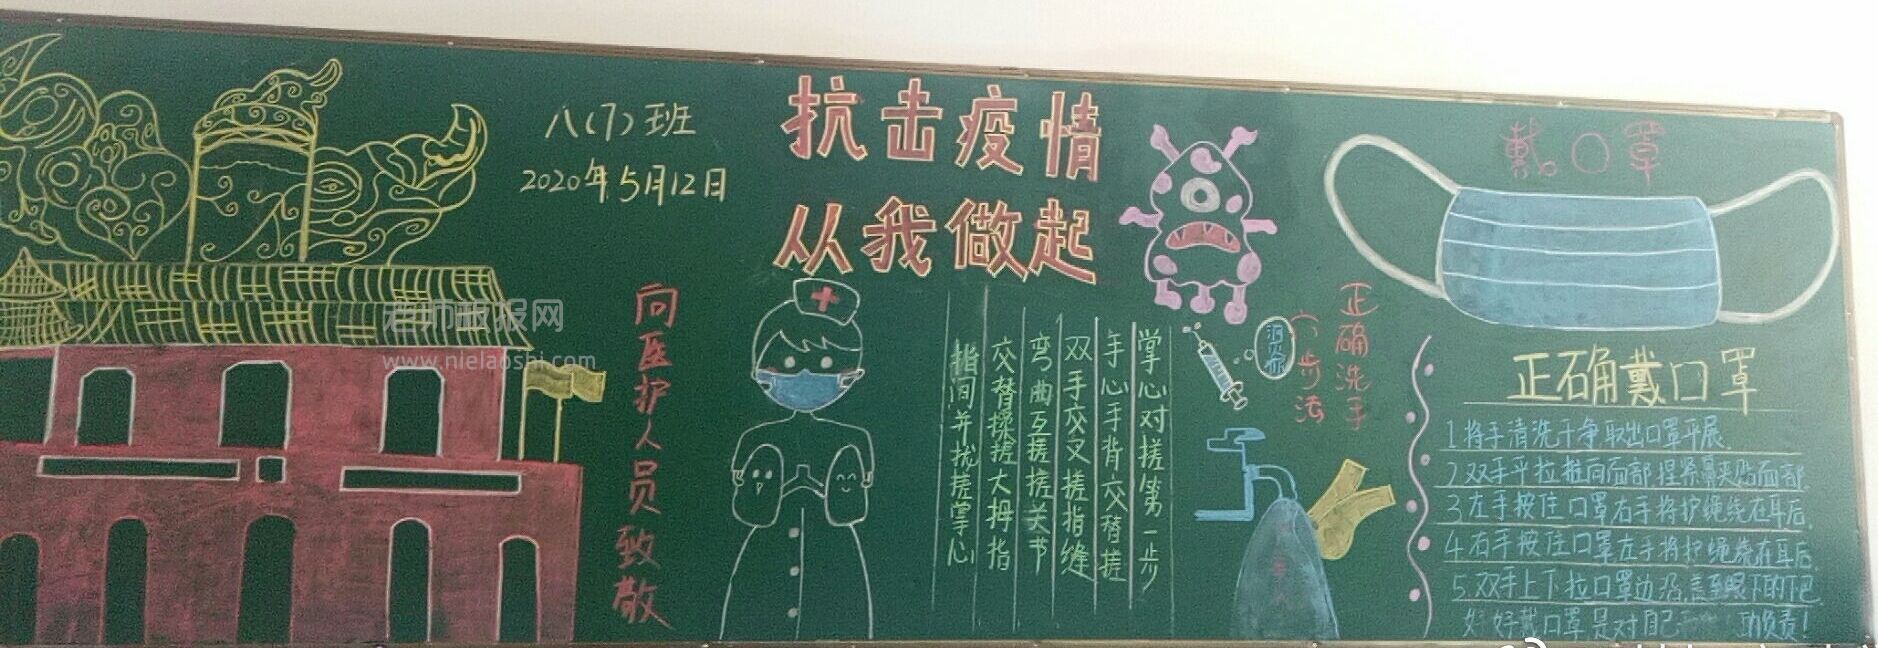 八(7)班
2020年5月12日
抗击疫情
从我做起
向医护人员致敬
老师板报网
www.nielaoshi.com
正确洗手
六步法
掌心对搓第一步
手心手背交替搓
双手交叉搓指缝
弯曲互搓搓关节
交替揉搓大拇指
指间并拢搓掌心
戴口罩
正确戴口罩
1将手清洗干净取出口罩平展
2双手平拉推向面部捏紧鼻夹贴面部
3左手按住口罩右手将护绳绕在耳后
4右手按住口罩左手将护绳绕在耳后
5.双手上下拉口罩边沿 至眼下的下巴
好好戴口罩是对自己 负责!